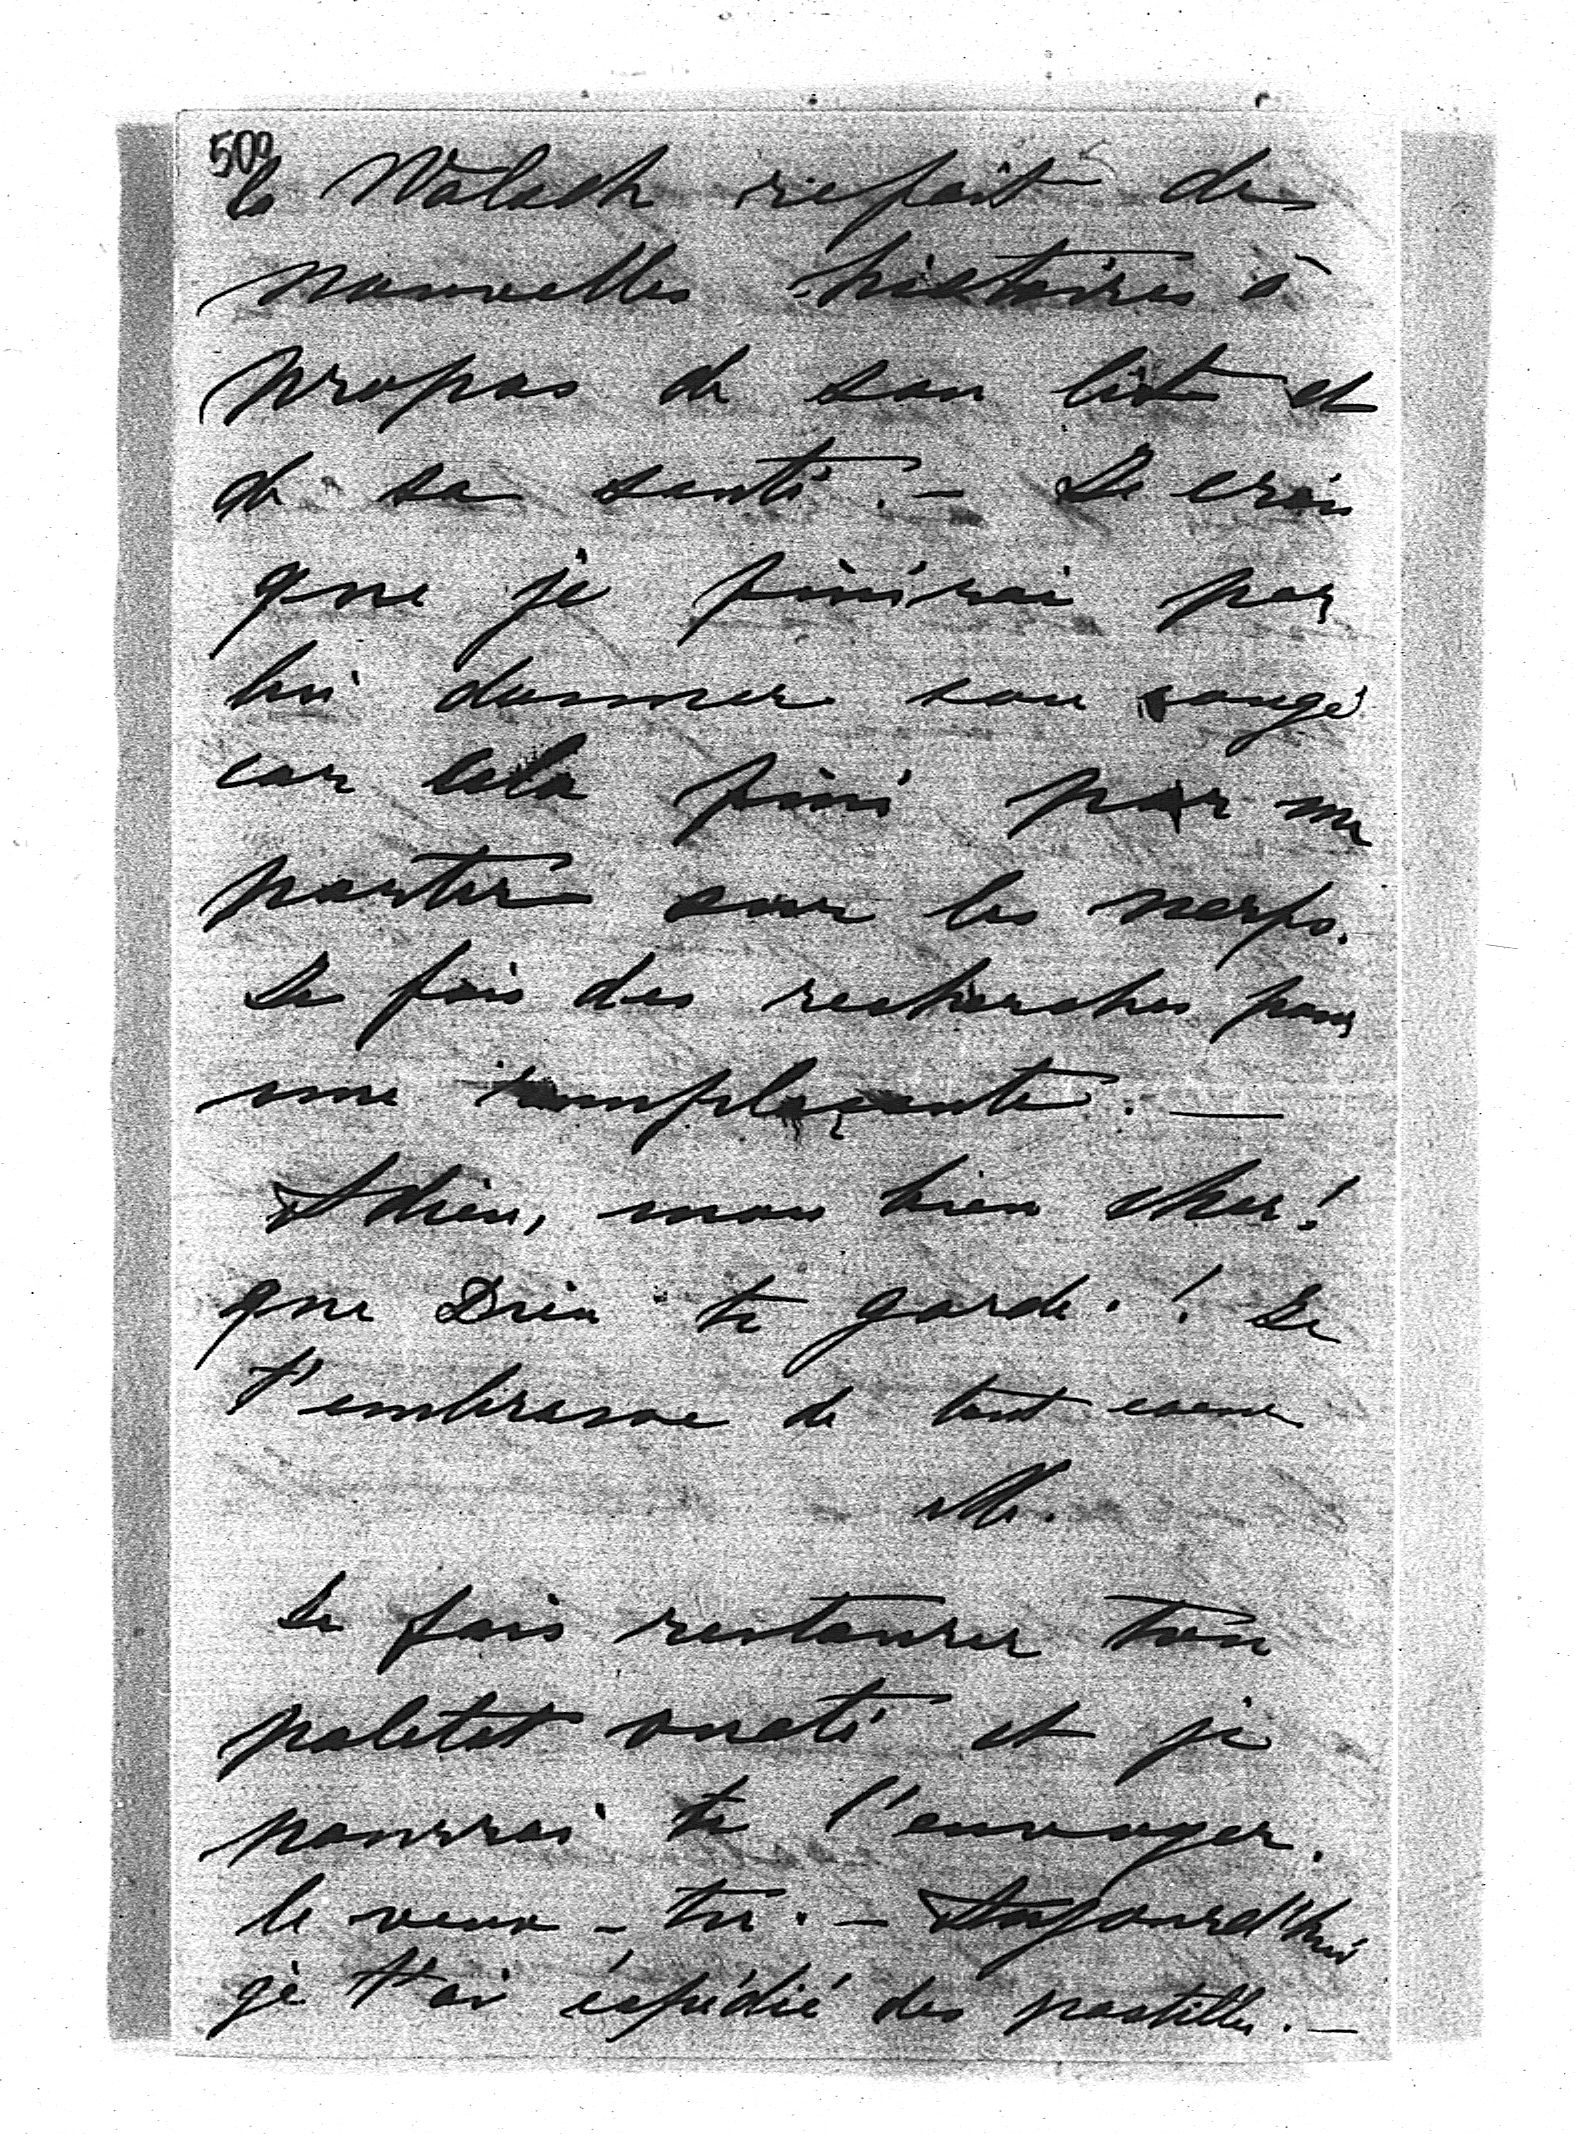 502
la Walach refait de
nouvelles histoires à
propos de son lit et
de sa santé. – Je crois
que je finirai par
lui donner son congé
car cela fini par me
porter sur les nerfs.
Je fais des recherches pour
une remplaçante. —
Adieu, mon bien cher!
que Dieu te garde! Je
t'embrasse de tout coeur
M.
Je fais restaurer ton
paletot ouaté et je
pourrai te l'envoyer.
le veux-tu. – Aujourd'hui
je t'ai éxpédié des pastilles. —